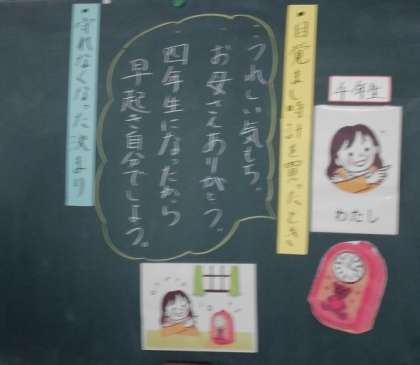 目覚まし時計を買ったとき
うれしい気もち。
お母さんありがとう。
四年生になったから
早起き自分でしよう。
守れなくなった決まり
わたし